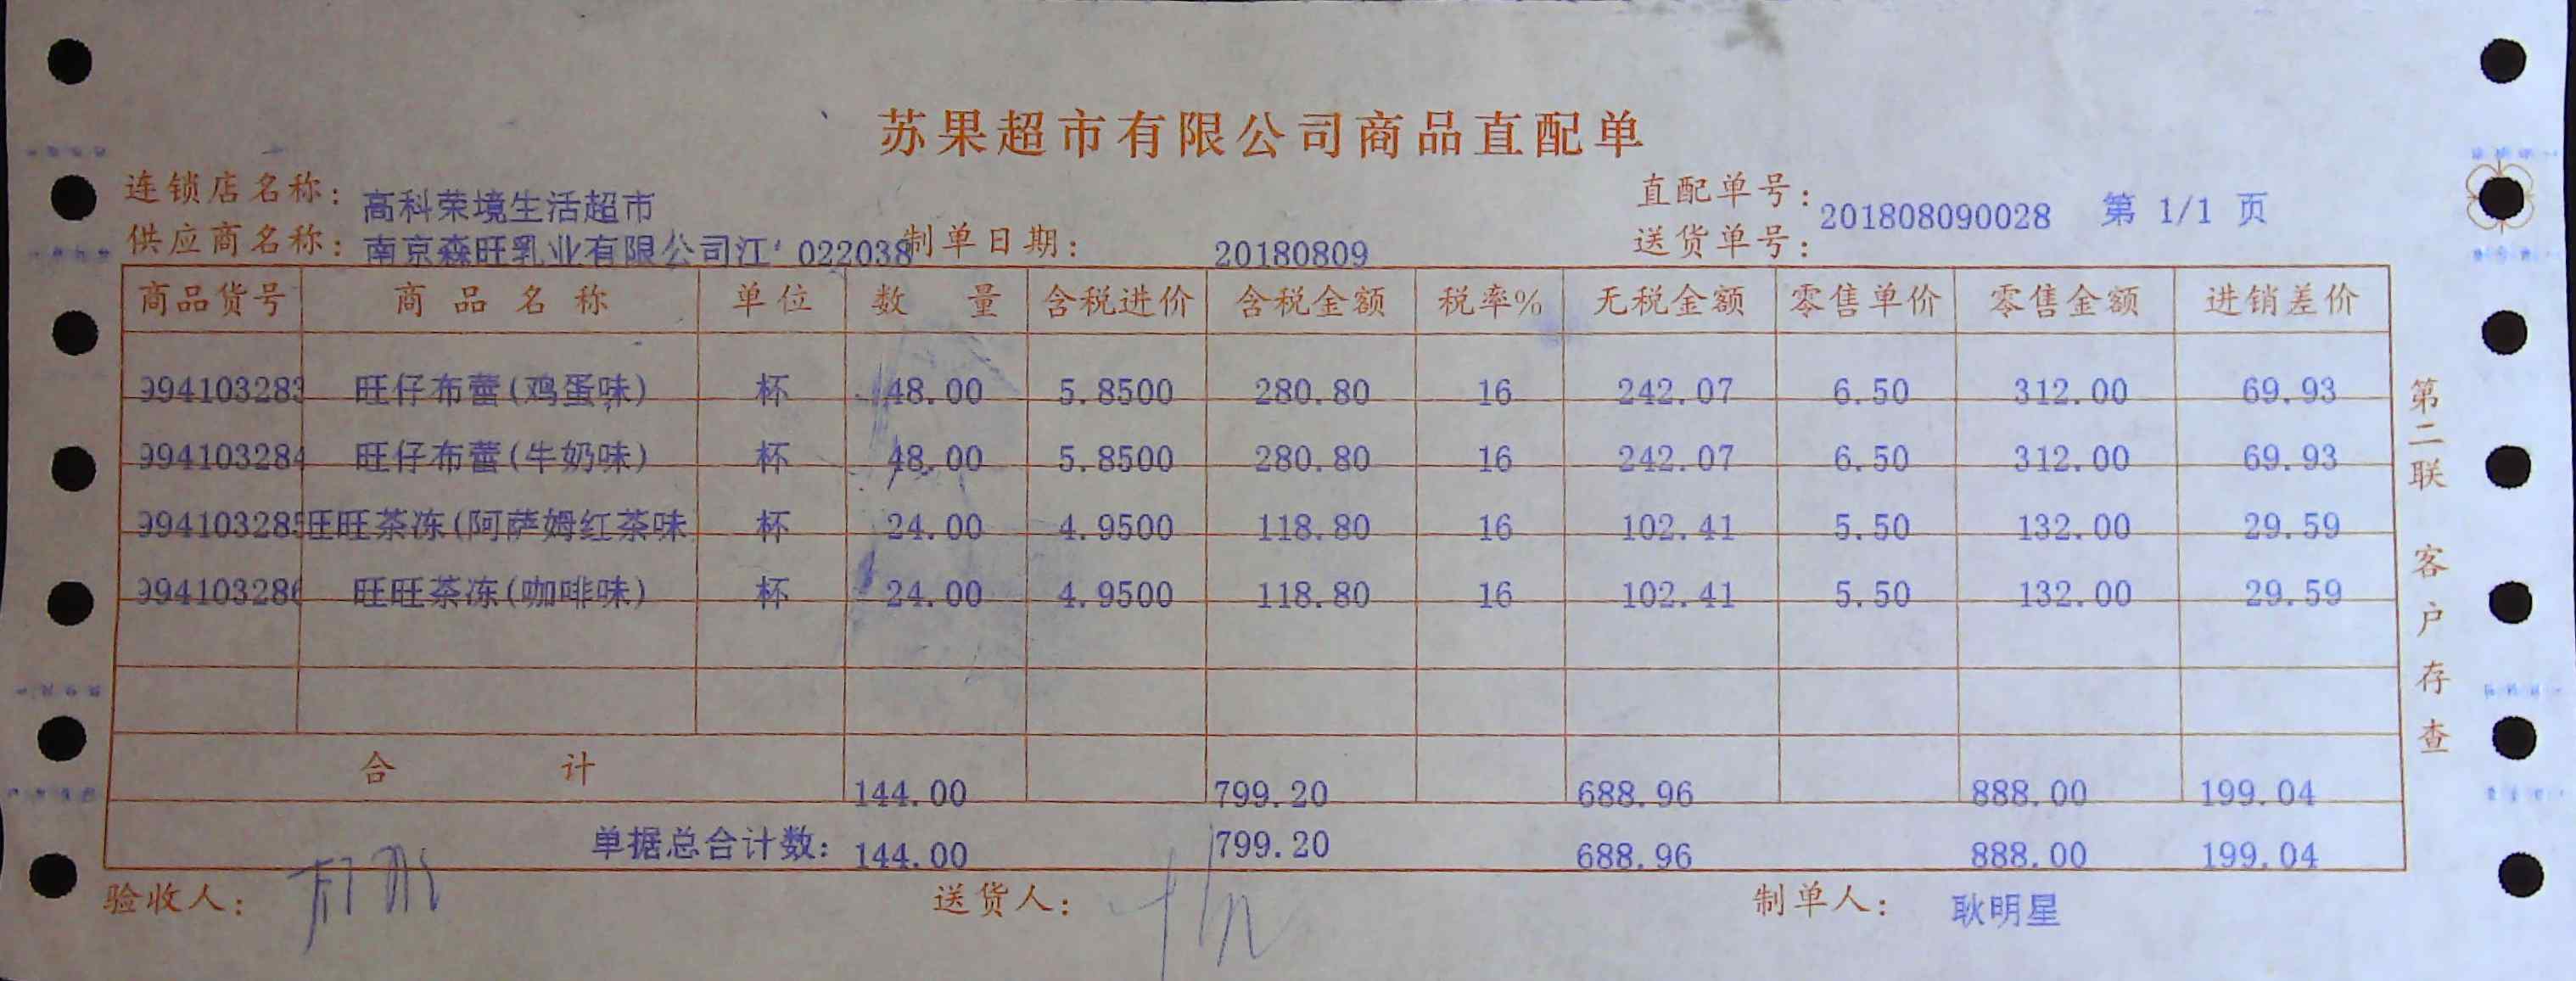 苏果超市有限公司商品直配单
连锁店名称: 高科荣境生活超市 直配单号: 201808090028 第 1/1 页
供应商名称: 南京森旺乳业有限公司江 022038 制单日期: 20180809 送货单号:
商品货号 商品名称 单位 数量 含税进价 含税金额 税率% 无税金额 零售单价 零售金额 进销差价
994103283 旺仔布蕾(鸡蛋味) 杯 48.00 5.8500 280.80 16 242.07 6.50 312.00 69.93
994103284 旺仔布蕾(牛奶味) 杯 48.00 5.8500 280.80 16 242.07 6.50 312.00 69.93
994103285 旺旺茶冻(阿萨姆红茶味 杯 24.00 4.9500 118.80 16 102.41 5.50 132.00 29.59
994103286 旺旺茶冻(咖啡味) 杯 24.00 4.9500 118.80 16 102.41 5.50 132.00 29.59
合计 144.00 799.20 688.96 888.00 199.04
单据总合计数: 144.00 799.20 688.96 888.00 199.04
验收人: 送货人: 制单人: 耿明星
第二联 客户存查